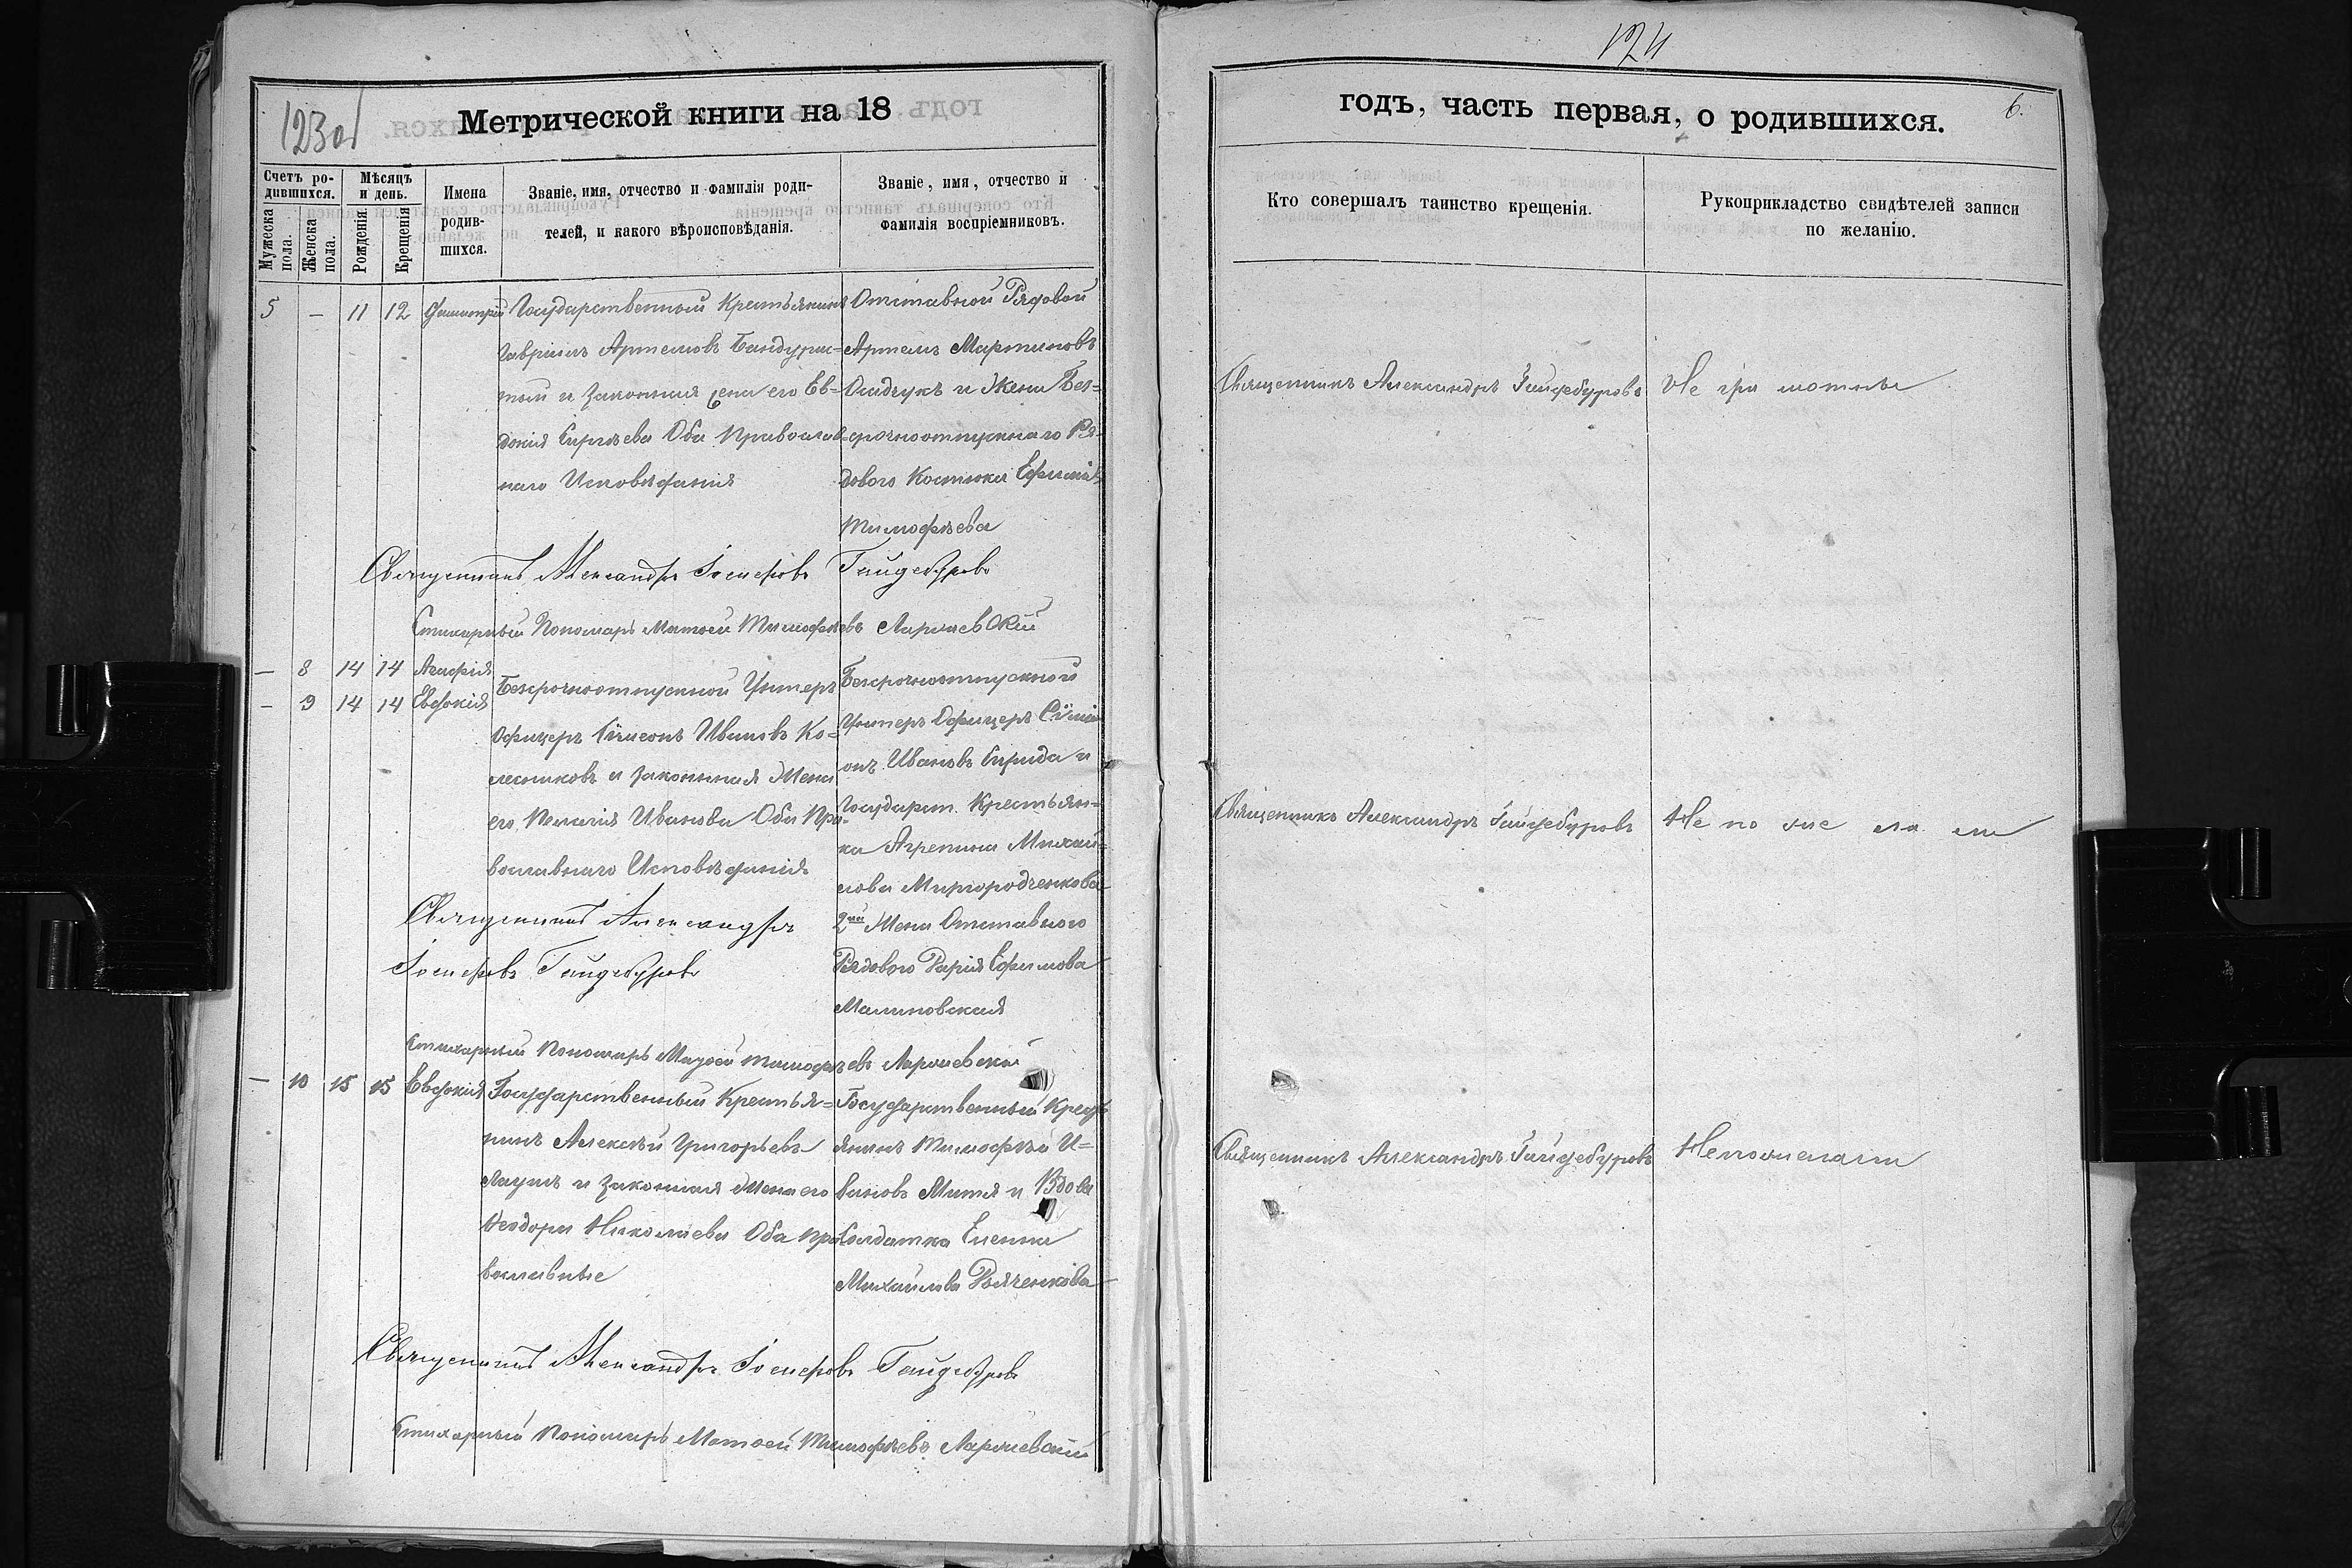 123об
Метрической книги на 18
Счетъ ро-
дившихся.
Мѣсяцъ
и день.
Мужеска
пола.
Женска
пола.
Рожденія.
Крещенія
Имена
родив-
шихся.
Званіе, имя, отчество и фамилія роди-
телей, и какого вѣроисповѣданія.
Званіе, имя, отчество и
фамилія воспріемниковъ.
5 — 11 12 Димитрій
Государственный Крестьянинъ
Гавріилъ Артемовъ Бандурис-
тый и законная жена его Ев-
докія Сергѣева Оба Православ-
наго Исповѣданія
Отставной Рядовой
Артемъ Мартиновъ
Осадчукъ и Жена Без-
срочноотпускнаго Ря-
дового Костюка Ефимія
Тимофѣева
Священникъ Александръ Іосифовъ Гайдебуровъ
Стихарный Пономарь Матоей Тимофѣевъ Ларіевскій
— 8 14 14 Агафія
— 9 14 14 Евдокія
Безсрочноотпускной Унтеръ
Офицеръ Сѵмеонъ Ивановъ Ко-
лесниковъ и законная Жена
его Пелагія Иванова Оба Пра-
вославнаго Исповѣданія
Безсрочноотпускной
Унтеръ Офицеръ Сѵме-
онъ Ивановъ и
Государст. Крестьян-
ка Агрепина Михай-
лова Миргородченкова
2ая Жена Отставного
Рядового Дарія Ефимова
Малиновская
Священникъ Александръ
Іосифовъ Гайдебуровъ
Стихарный Пономарь Матоей Тимофѣевъ Ларіевской
— 10 15 15 Евдокія
Государственный Крестья-
нинъ Алексѣй Григорьевъ
и законная Жена его
Ѳеодора Николаева Оба пра-
вославные
Государственный Кресть
янинъ Тимофѣй И-
вановъ Митя и Вдова
Солдатка Елена
Михайлова
Священникъ Александръ Іосифовъ Гайдебуровъ
Стихарный Пономарь Матоей Тимофѣевъ Ларіевскій
124
6.
годъ, часть первая, о родившихся.
Кто совершалъ таинство крещенія.
Рукоприкладство свидѣтелей записи
по желанію.
Священникъ Александръ Гайдебуровъ
Не гра мотные
Священникъ Александръ Гайдебуровъ
Не по же ла ли
Священникъ Александръ Гайдебуровъ
Непожелали